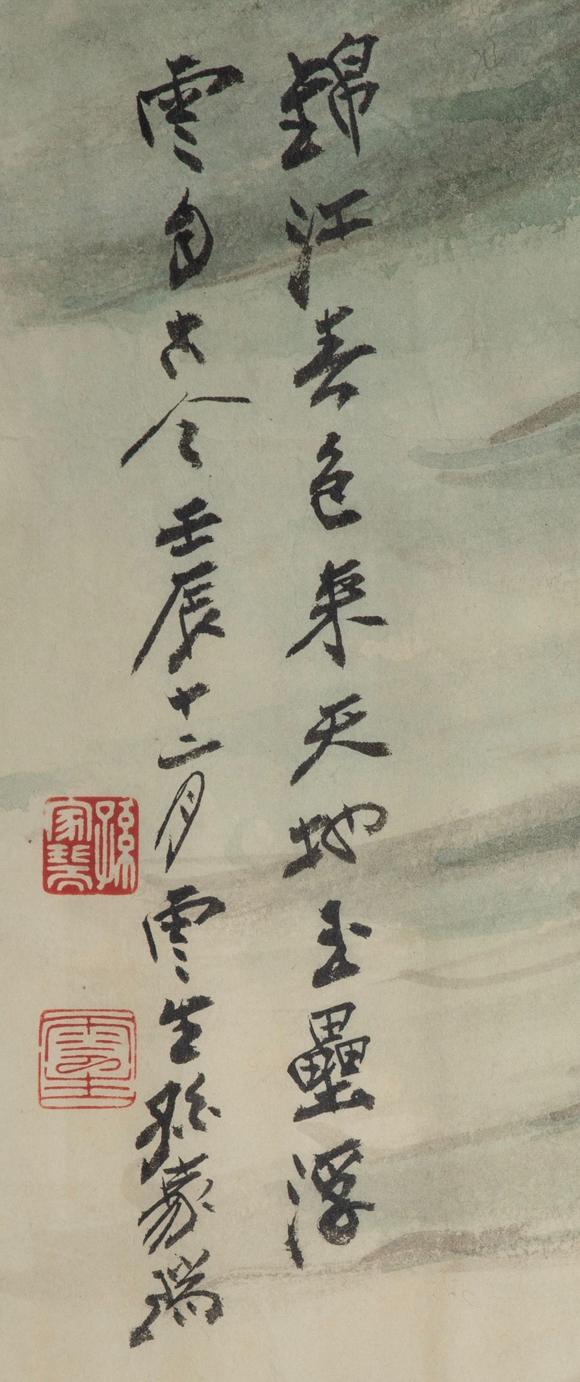 錦江春色來天地玉壘浮
雲自古今壬辰十二月雲生孫家瑞
孫家瑞
雲生